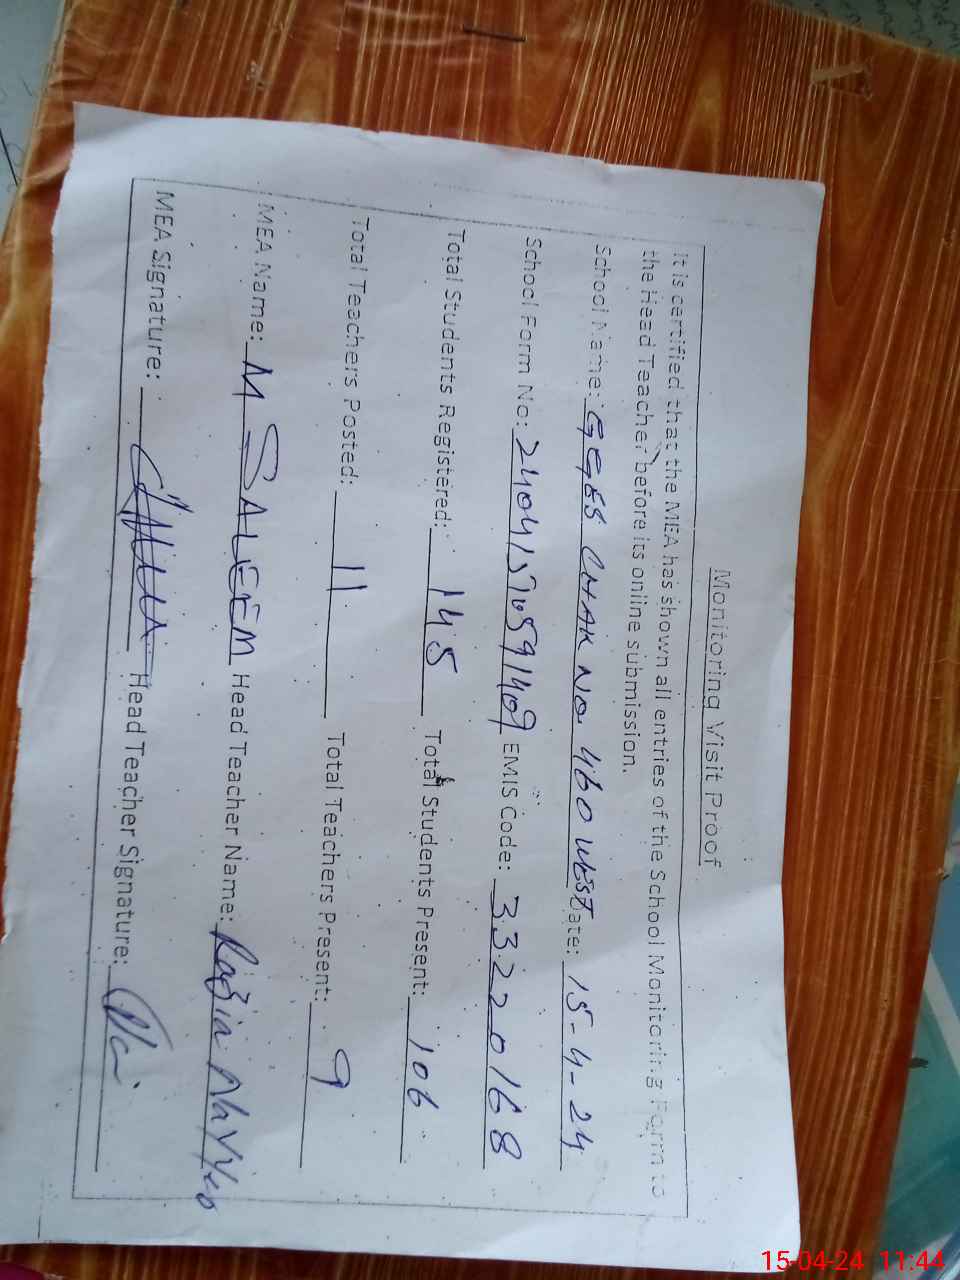 Monitoring Visit Proof
It is certified that the MEA has shown all entries of the School Monitoring Form to
the Head Teacher before its online submission.
School Name: GGES CHAK NO. 460 WEST Date: 15-4-24
School Form No: EMIS Code: 33220168
Total Students Registered: 145 Total Students Present: 106
Total Teachers Posted: 11 Total Teachers Present: 9
MEA Name: M SALEEM Head Teacher Name: Razia
MEA Signature: Head Teacher Signature:
15-04-24 11:44